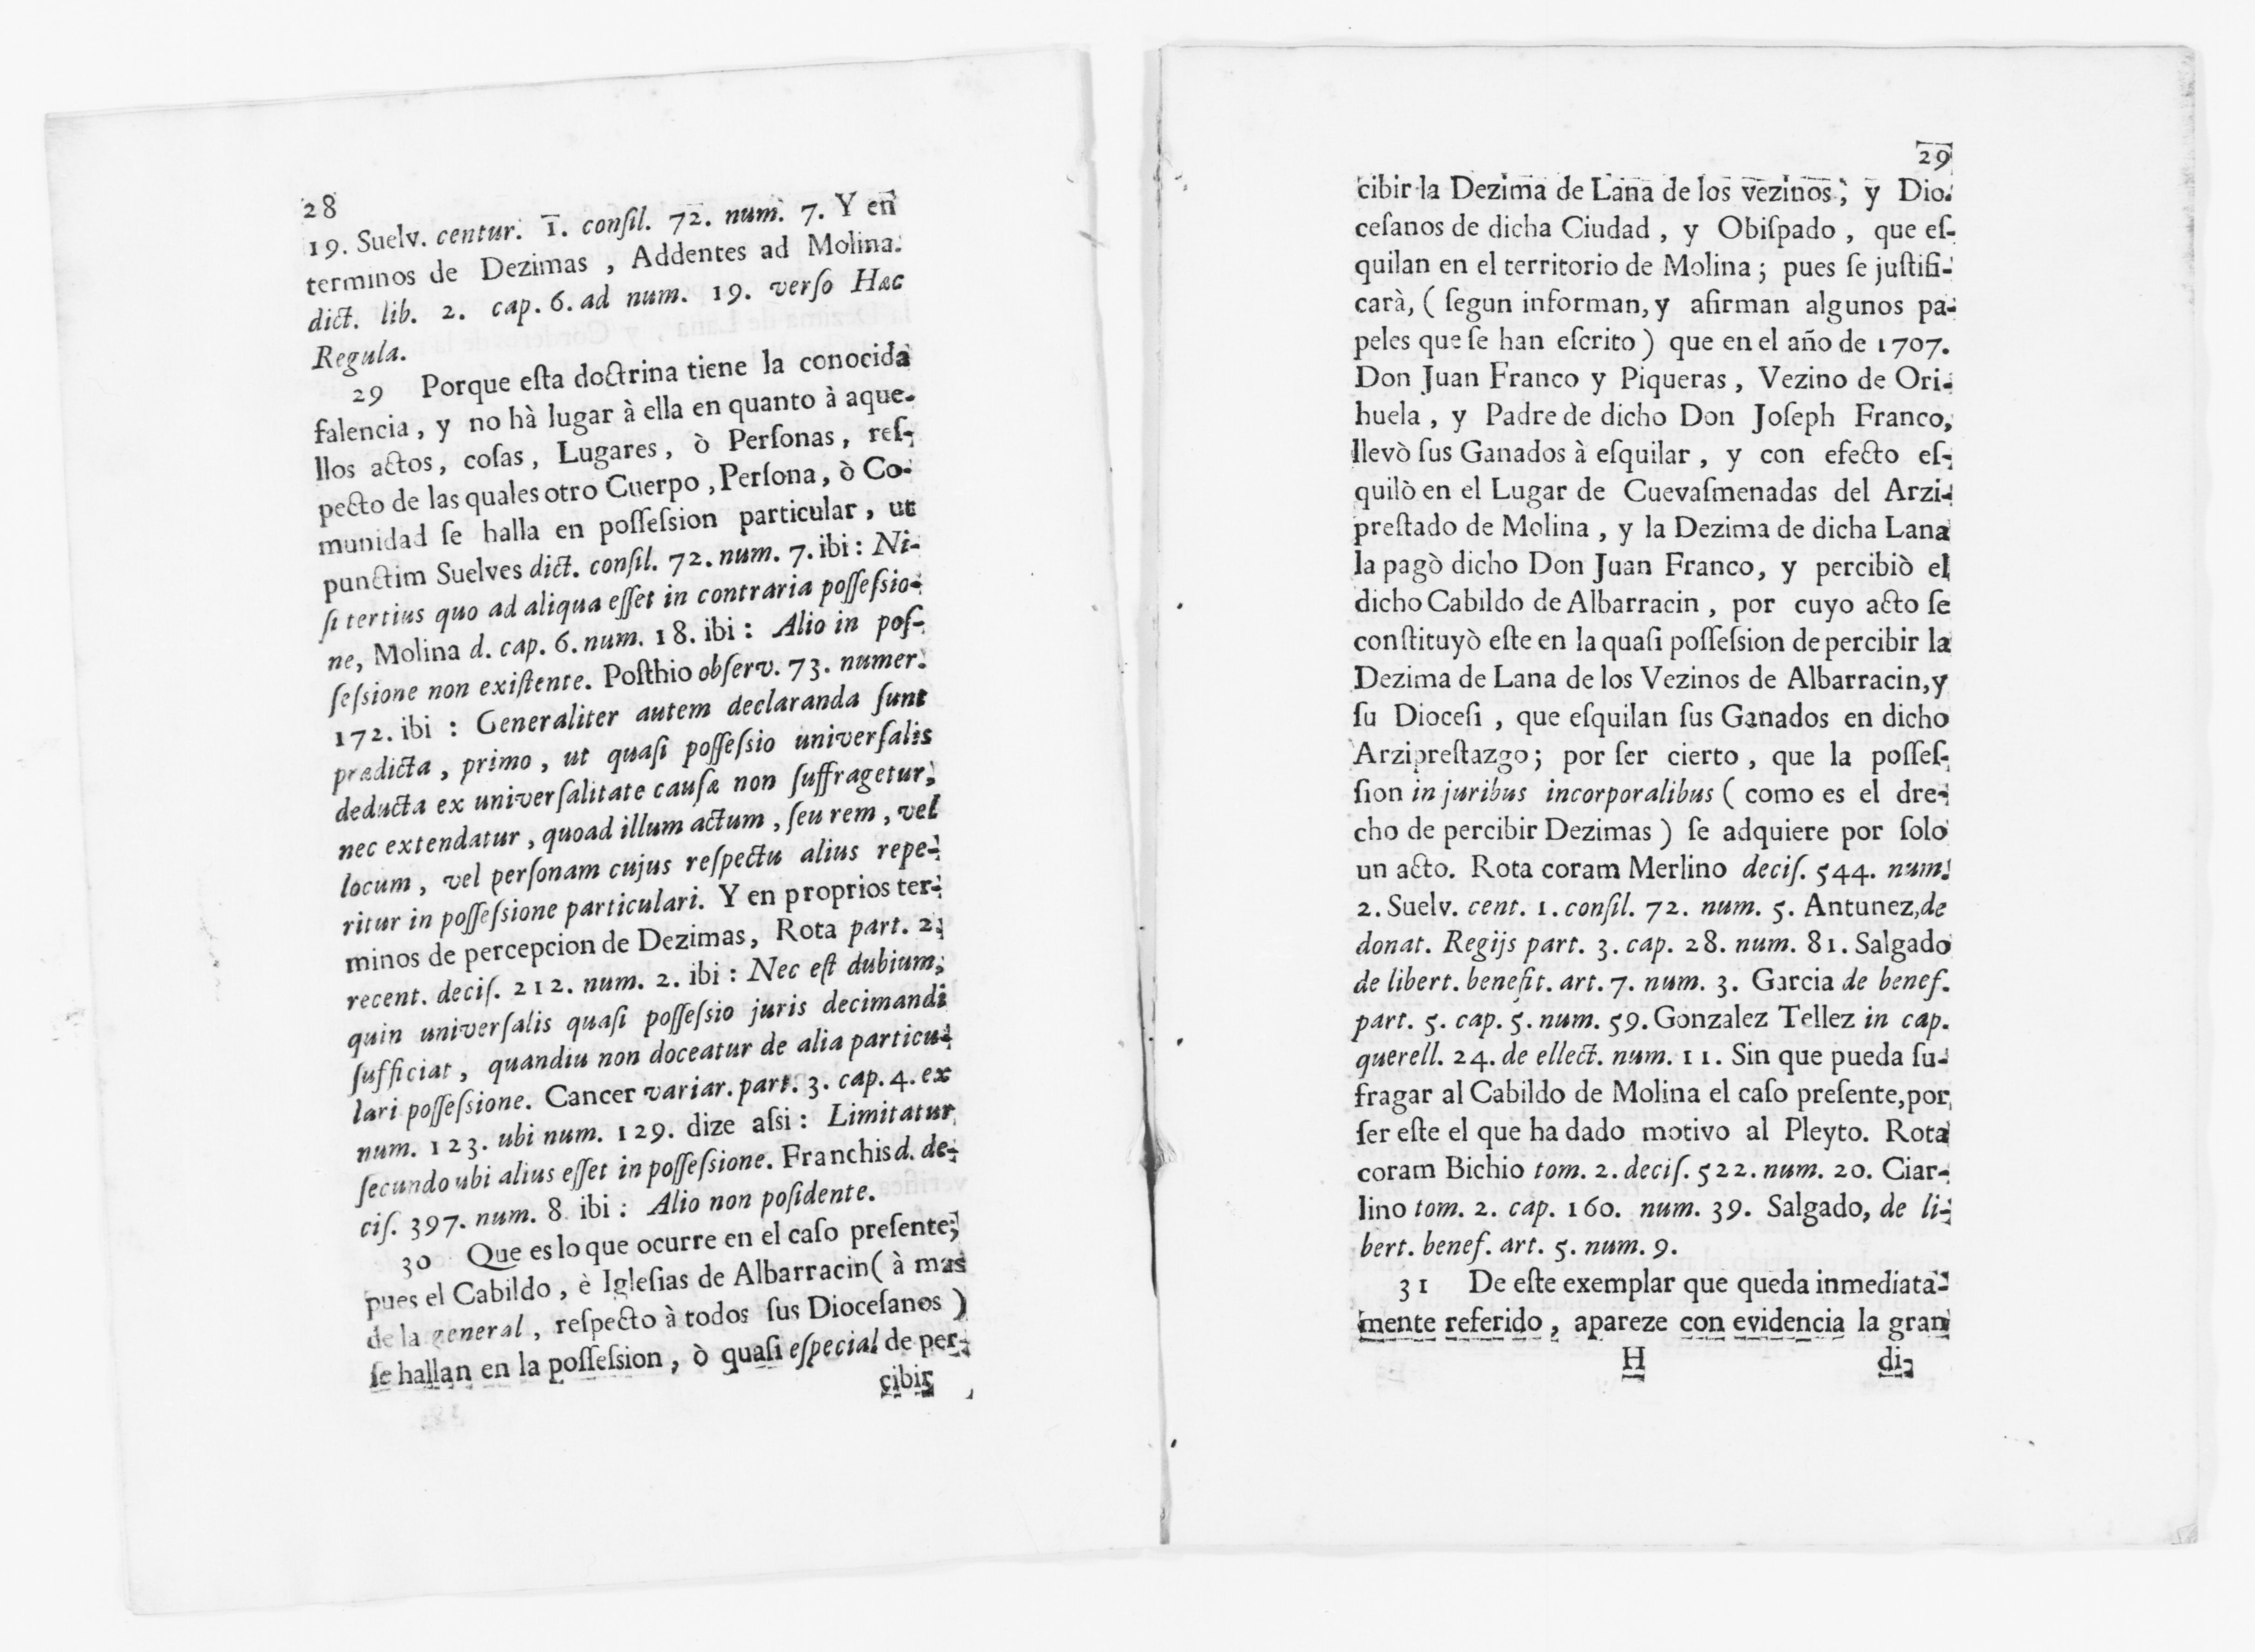 28
19. Suelv. centur. 1. conſil. 72. num. 7. Y en
terminos de Dezimas, Addentes ad Molina.
dict. lib. 2. cap. 6. ad num. 19. verſo Hæc
Regula.
29 Porque eſta doctrina tiene la conocida
falencia, y no hà lugar à ella en quanto à aque-
llos actos, coſas, Lugares, ò Perſonas, reſ-
pecto de las quales otro Cuerpo, Perſona, ò Co-
munidad ſe halla en poſſeſsion particular, ut
punctim Suelves dict. conſil. 72. num. 7. ibi: Ni-
ſi tertius quo ad aliqua eſſet in contraria poſſeſsio-
ne, Molina d. cap. 6. num. 18. ibi: Alio in poſ-
ſeſsione non exiſtente. Poſthio obſerv. 73. numer.
172. ibi: Generaliter autem declaranda ſunt
prædicta, primo, ut quaſi poſſeſsio univerſalis
deducta ex univerſalitate cauſæ non ſuffragetur,
nec extendatur, quoad illum actum, ſeu rem, vel
locum, vel perſonam cujus reſpectu alius repe-
ritur in poſſeſsione particulari. Y en proprios ter-
minos de percepcion de Dezimas, Rota part. 2.
recent. deciſ. 212. num. 2. ibi: Nec eſt dubium,
quin univerſalis quaſi poſſeſsio juris decimandi
ſufficiat, quandiu non doceatur de alia particu-
lari poſſeſsione. Cancer variar. part. 3. cap. 4. ex
num. 123. ubi num. 129. dize aſsi: Limitatur
ſecundo ubi alius eſſet in poſſeſsione. Franchis d. de-
ciſ. 397. num. 8 ibi: Alio non poſidente.
30 Que es lo que ocurre en el caſo preſente;
pues el Cabildo, è Igleſias de Albarracin (à mas
de la general, reſpecto à todos ſus Dioceſanos)
ſe hallan en la poſſeſsion, ò quaſi eſpecial de per-
cibir
29
cibir la Dezima de Lana de los vezinos, y Dio-
ceſanos de dicha Ciudad, y Obiſpado, que eſ-
quilan en el territorio de Molina; pues ſe juſtifi-
carà, (ſegun informan, y afirman algunos pa-
peles que ſe han eſcrito) que en el año de 1707.
Don Juan Franco y Piqueras, Vezino de Ori-
huela, y Padre de dicho Don Joſeph Franco,
llevò ſus Ganados à eſquilar, y con efecto eſ-
quilò en el Lugar de Cuevaſmenadas del Arzi-
preſtado de Molina, y la Dezima de dicha Lana
la pagò dicho Don Juan Franco, y percibiò el
dicho Cabildo de Albarracin, por cuyo acto ſe
conſtituyò eſte en la quaſi poſſeſsion de percibir la
Dezima de Lana de los Vezinos de Albarracin, y
ſu Dioceſi, que eſquilan ſus Ganados en dicho
Arzipreſtazgo; por ſer cierto, que la poſſeſ-
ſion in juribus incorporalibus (como es el dre-
cho de percibir Dezimas) ſe adquiere por ſolo
un acto. Rota coram Merlino deciſ. 544. num.
2. Suelv. cent. 1. conſil. 72. num. 5. Antunez, de
donat. Regijs part. 3. cap. 28. num. 81. Salgado
de libert. benefit. art. 7. num. 3. Garcia de benef.
part. 5. cap. 5. num. 59. Gonzalez Tellez in cap.
querell. 24. de ellect. num. 11. Sin que pueda ſu-
fragar al Cabildo de Molina el caſo preſente, por
ſer eſte el que ha dado motivo al Pleyto. Rota
coram Bichio tom. 2. deciſ. 522. num. 20. Ciar-
lino tom. 2. cap. 160. num. 39. Salgado, de li-
bert. benef. art. 5. num. 9.
31 De eſte exemplar que queda inmediata-
mente referido, apareze con evidencia la gran
H di-